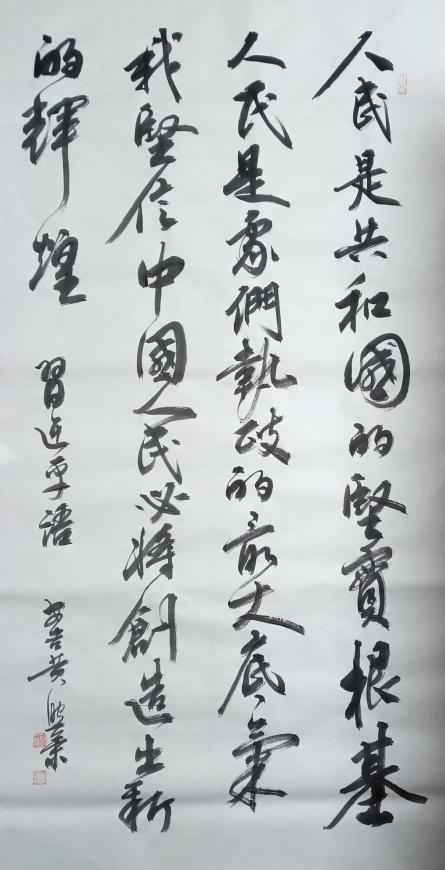 人民是共和國的堅實根基
人民是們執政的最大底氣
我堅信中國人民必將創造出新
的輝煌 習近平語